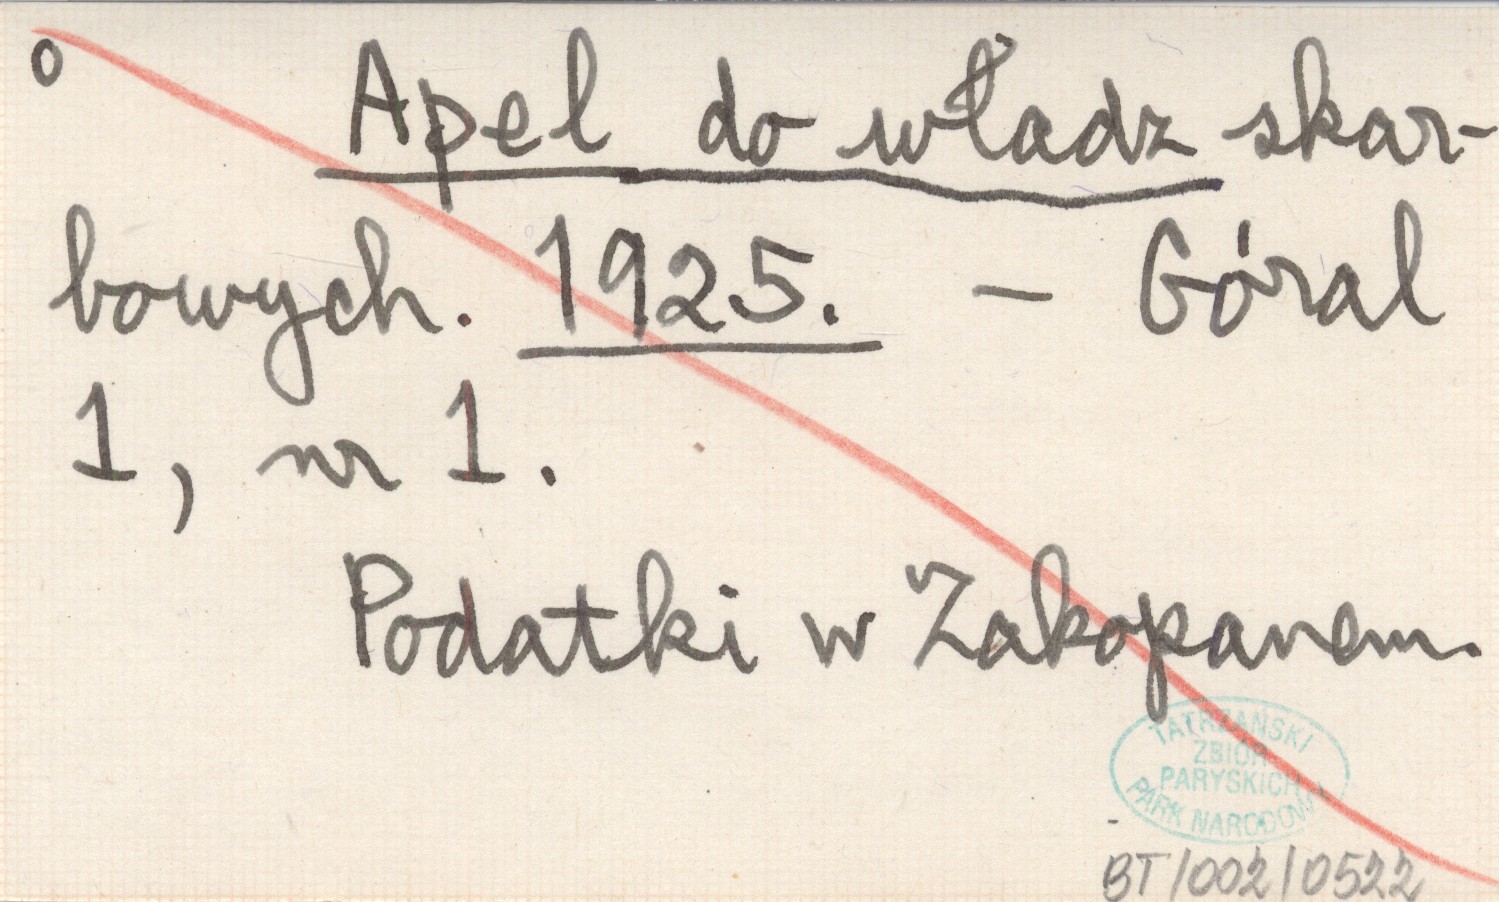 o Apel do władz skar-
bowych. 1925. – Góral
1, nr 1.
Podatki w Zakopanem.
TATRZAŃSKI
ZBIÓR
PARYSKICH
PARK NARODOWY
BT/002/0522